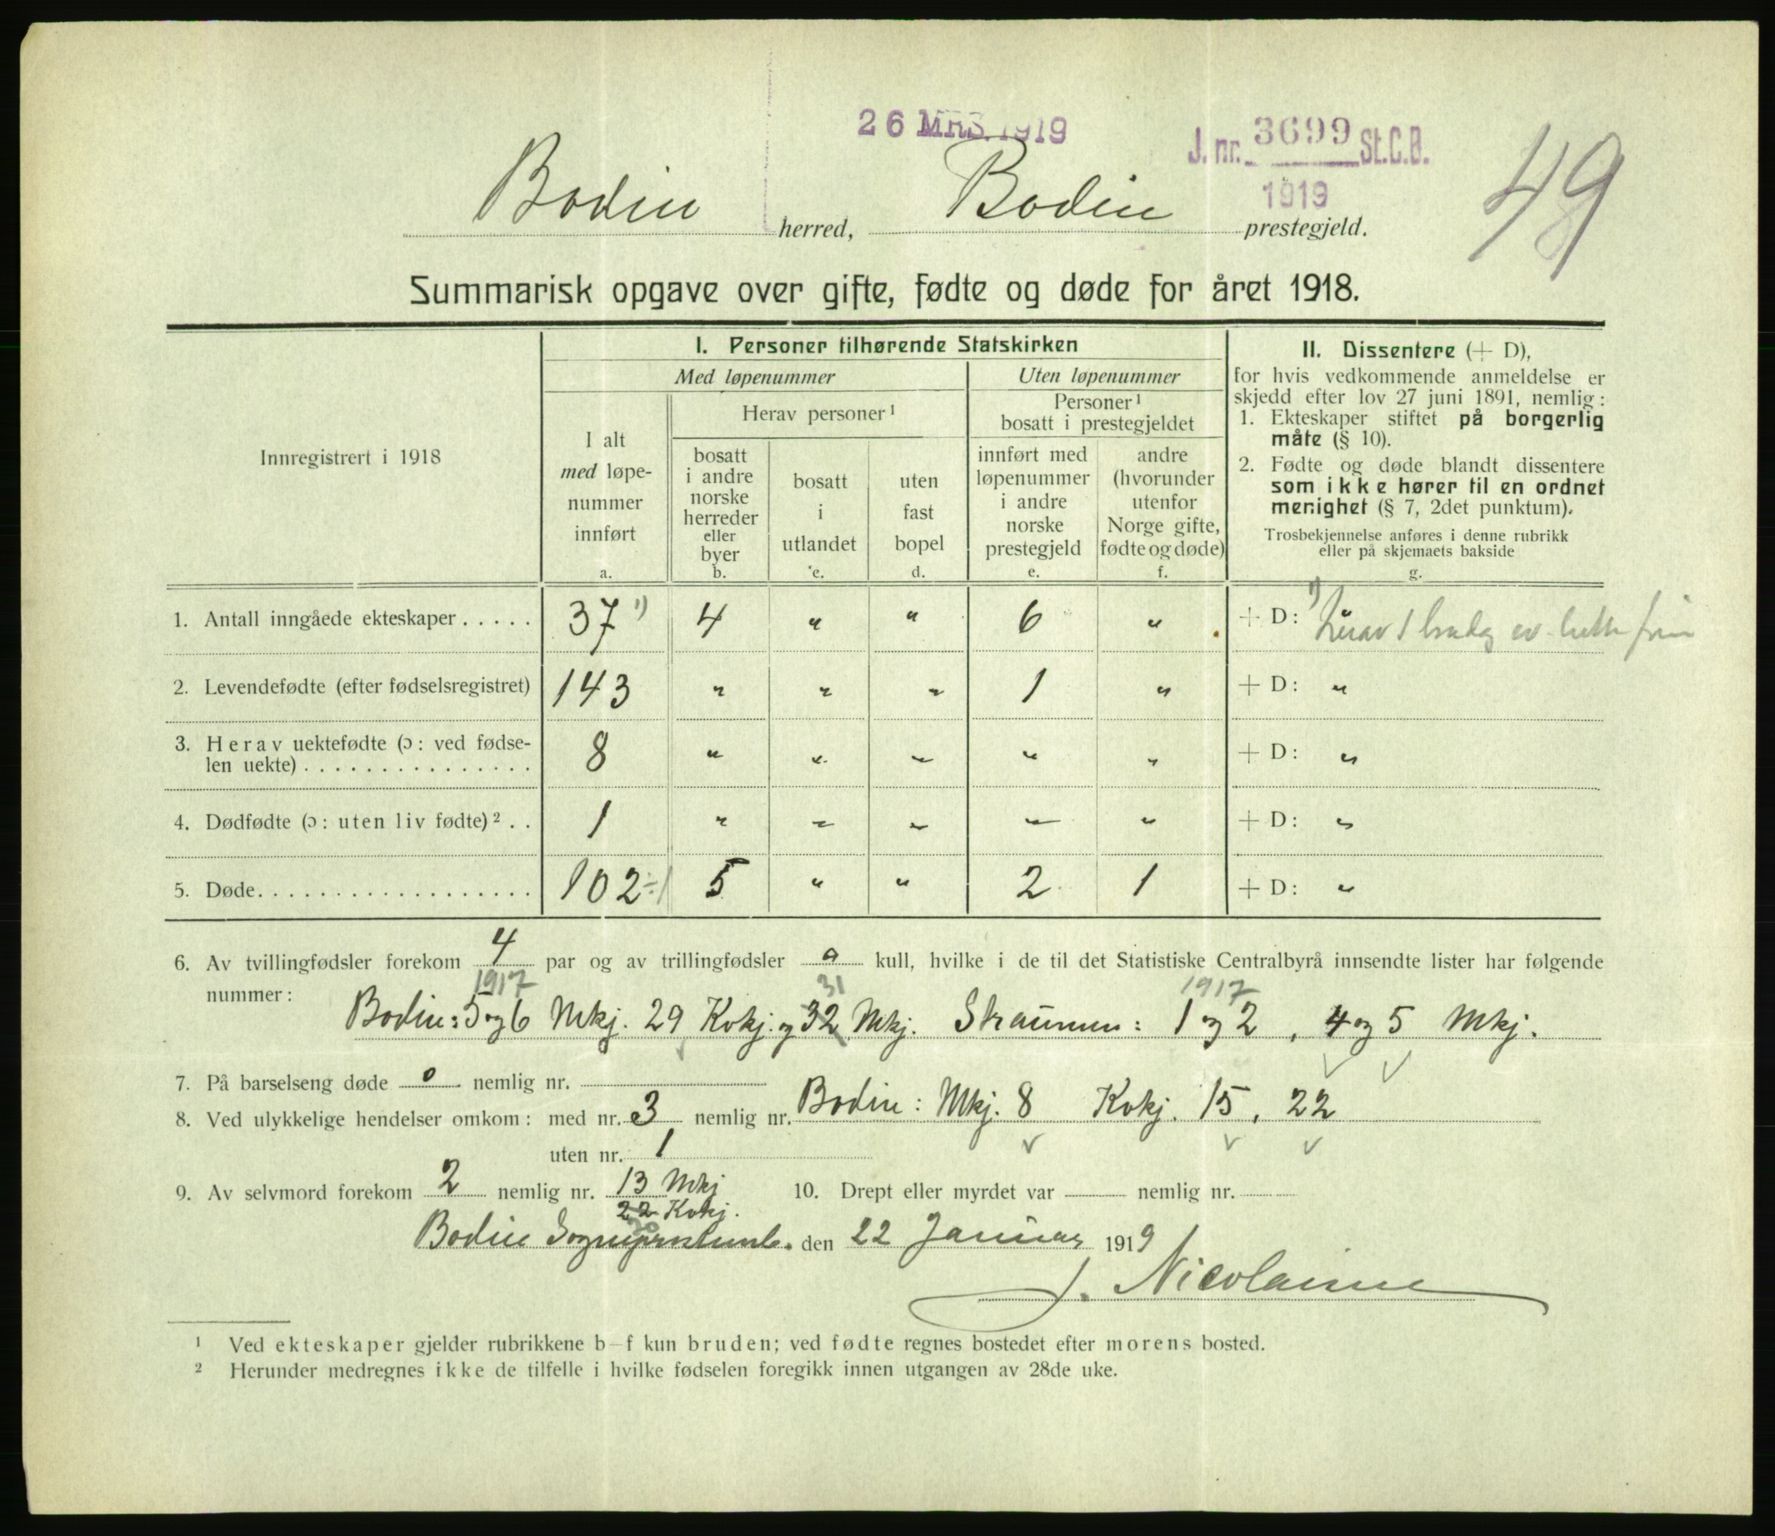 26 MRS. 1919
J. nr. 3699 St.C.B.
1919
49
Bodin herred, Bodin prestegjeld.
Summarisk opgave over gifte, fødte og døde for året 1918.
Innregistrert i 1918
I. Personer tilhørende Statskirken
Med løpenummer
Uten løpenummer
I alt
med løpe-
nummer
innført
a.
Herav personer ¹
bosatt
i andre
norske
herreder
eller
byer
b.
bosatt
i
utlandet
c.
uten
fast
bopel
d.
Personer ¹
bosatt i prestegjeldet
innført med
løpenummer
i andre
norske
prestegjeld
e.
andre
(hvorunder
utenfor
Norge gifte,
fødte og døde)
f.
II. Dissentere (+ D),
for hvis vedkommende anmeldelse er
skjedd efter lov 27 juni 1891, nemlig:
1. Ekteskaper stiftet på borgerlig
måte (§ 10).
2. Fødte og døde blandt dissentere
som ikke hører til en ordnet
menighet (§ 7, 2det punktum).
Trosbekjennelse anføres i denne rubrikk
eller på skjemaets bakside
g.
1. Antall inngåede ekteskaper . . . . . 37 ¹) 4 " " 6 " + D: ¹) 1
2. Levendefødte (efter fødselsregistret) 143 " " " 1 " + D: "
3. Herav uektefødte (ɔ: ved fødse-
len uekte) . . . . . . . . . . . . . . . 8 " " " " " + D: "
4. Dødfødte (ɔ: uten liv fødte) ² . . 1 " " " " " + D: "
5. Døde. . . . . . . . . . . . . . . . . . 102 ÷1 5 " " 2 1 + D: "
6. Av tvillingfødsler forekom 4 par og av trillingfødsler o kull, hvilke i de til det Statistiske Centralbyrå innsendte lister har følgende
nummer:
1917 31 1917
Bodin: 5 og 6 Mkj. 29 Kvkj. og 32 Mkj. Straumen: 1 og 2, 4 og 5 Mkj.
7. På barselseng døde o nemlig nr.
8. Ved ulykkelige hendelser omkom: med nr. 3 nemlig nr. Bodin: Mkj. 8 Kvkj. 15, 22
uten nr. 1
9. Av selvmord forekom 2 nemlig nr. 13 Mkj 10. Drept eller myrdet var — nemlig nr.
22 Kvkj.
Bodin den 22 Januar 1919
J. Nicolaisen
¹ Ved ekteskaper gjelder rubrikkene b–f kun bruden; ved fødte regnes bostedet efter morens bosted.
² Herunder medregnes ikke de tilfelle i hvilke fødselen foregikk innen utgangen av 28de uke.